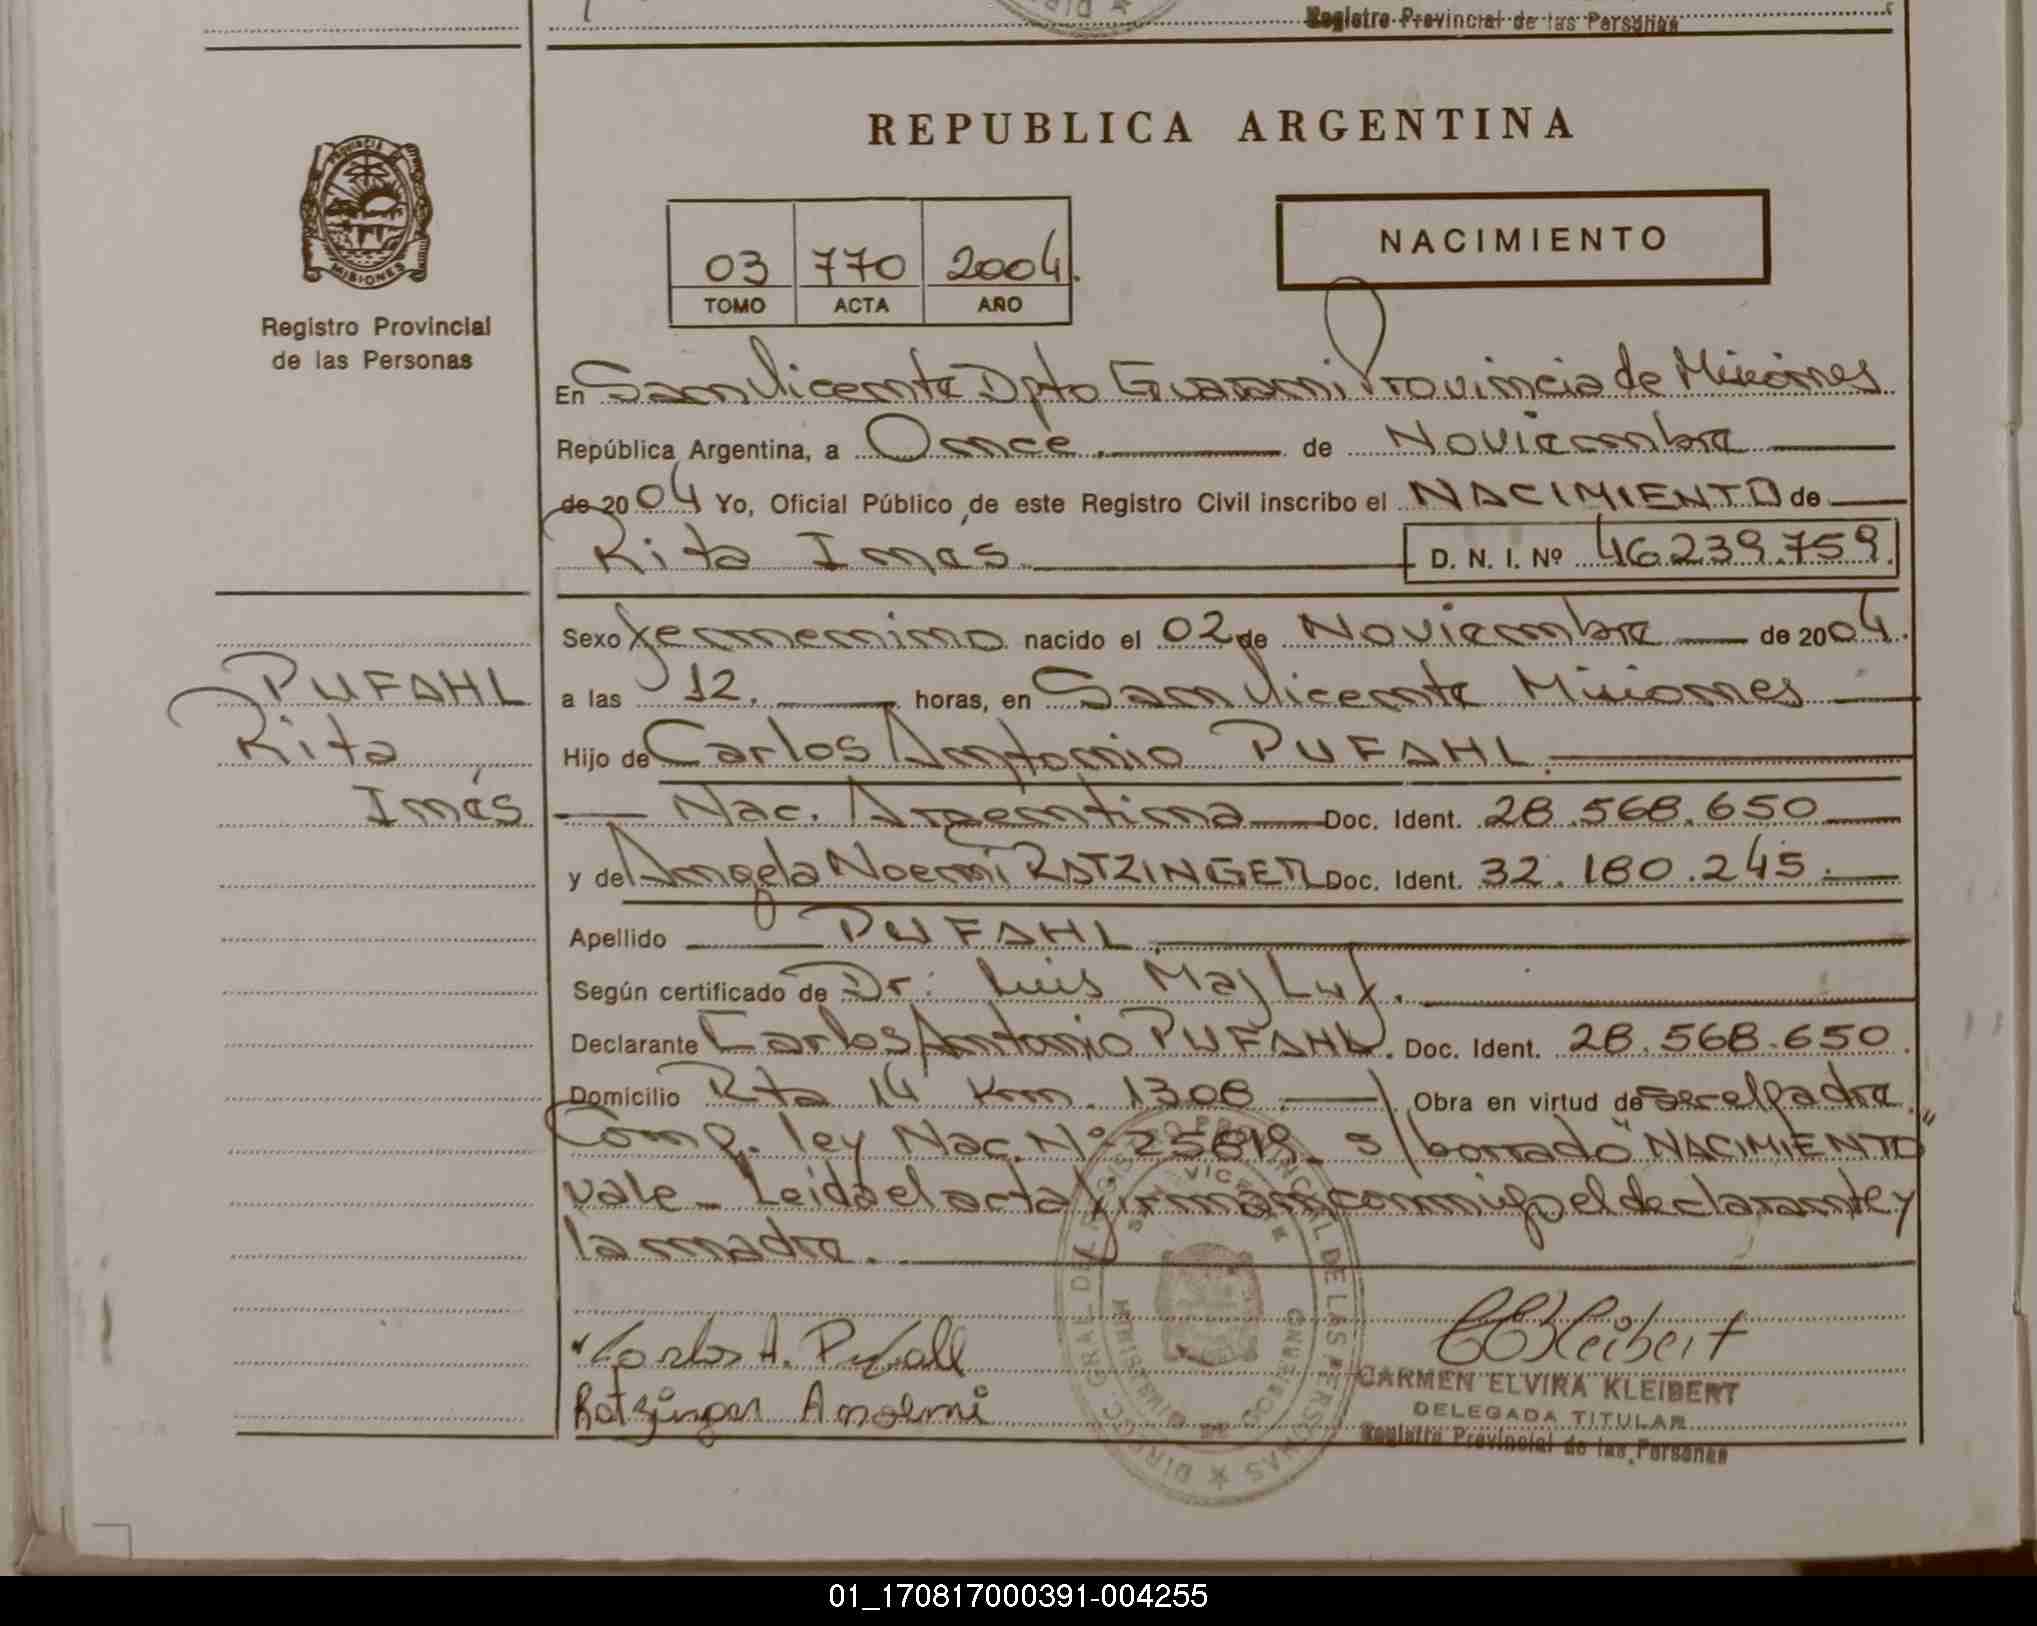 Registro Provincial de las Personas
REPUBLICA ARGENTINA
PROVINCIA DE
MISIONES
Registro Provincial
de las Personas
03 770 2004.
TOMO ACTA AÑO
NACIMIENTO
En San Vicente Dpto Guarani Provincia de Misiones
República Argentina, a Once de Noviembre
de 2004 Yo, Oficial Público de este Registro Civil inscribo el NACIMIENTO de
Rita Ines D. N. I. Nº 46.239.759.
Sexo femenino nacido el 02 de Noviembre de 2004.
PUFAHL
a las 12. horas, en San Vicente Misiones
Rita
Hijo de Carlos Antonio PUFAHL
Inés
Nac. Argentina Doc. Ident. 28.568.650
y de Angela Noemi RATZINGER Doc. Ident. 32.180.245.
Apellido PUFAHL
Según certificado de Dr: Luis Majluf.
Declarante Carlos Antonio PUFAHL. Doc. Ident. 28.568.650.
Domicilio Rta 14 Km. 1308. Obra en virtud de ser el padre.
Comp. ley Nac. Nº 25819. s/borrado "NACIMIENTO"
vale_ Leida el acta firman conmigo el declarante y
la madre.
Carlos A. Pufall
Ratzinger Anoemi
CEKleibert
CARMEN ELVIRA KLEIBERT
DELEGADA TITULAR
Registro Provincial de las Personas
DIRECC. GRAL. DEL REGISTRO PROVINCIAL DE LAS PERSONAS
SAN VICENTE
MINISTERIO DE GOBIERNO
01_170817000391-004255